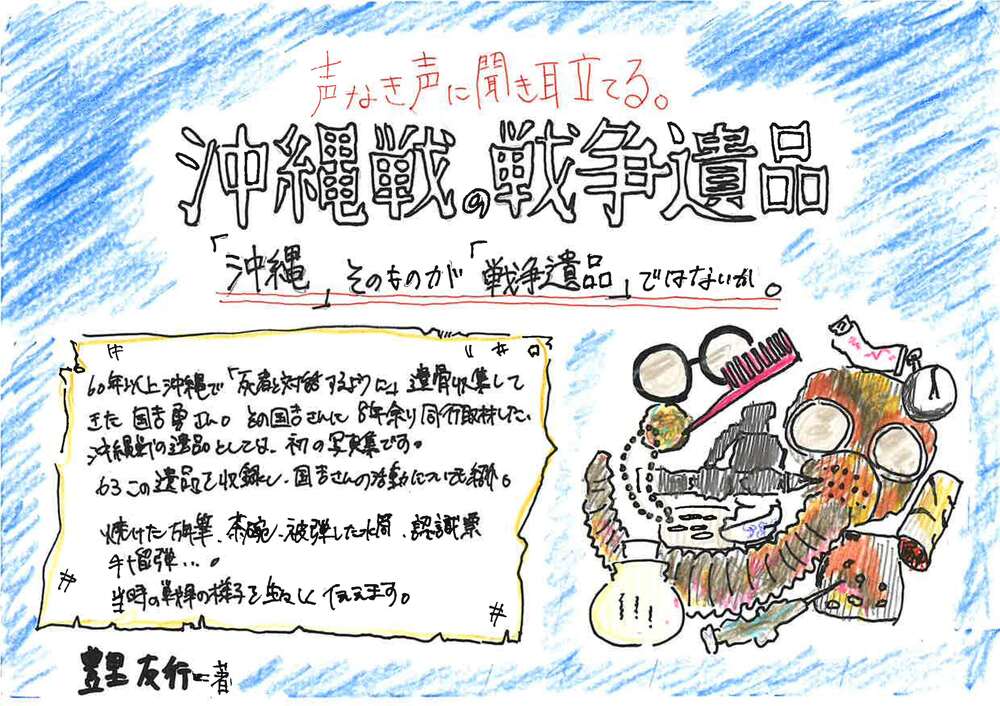 声なき声に聞き耳立てる。
沖縄戦の戦争遺品
「沖縄」そのものが「戦争遺品」ではないか。
60年以上沖縄で「死者と対話するように」遺骨収集して
きた国吉勇さん。その国吉さんに8年余り同行取材した、
沖縄戦の遺品としては、初の写真集です。
63この遺品を収録し、国吉さんの活動についても紹介。
焼けた万年筆、茶碗、被弾した水筒、認識票
手榴弾…。
当時の戦争の様子を生々しく伝えます。
豊里友行=著